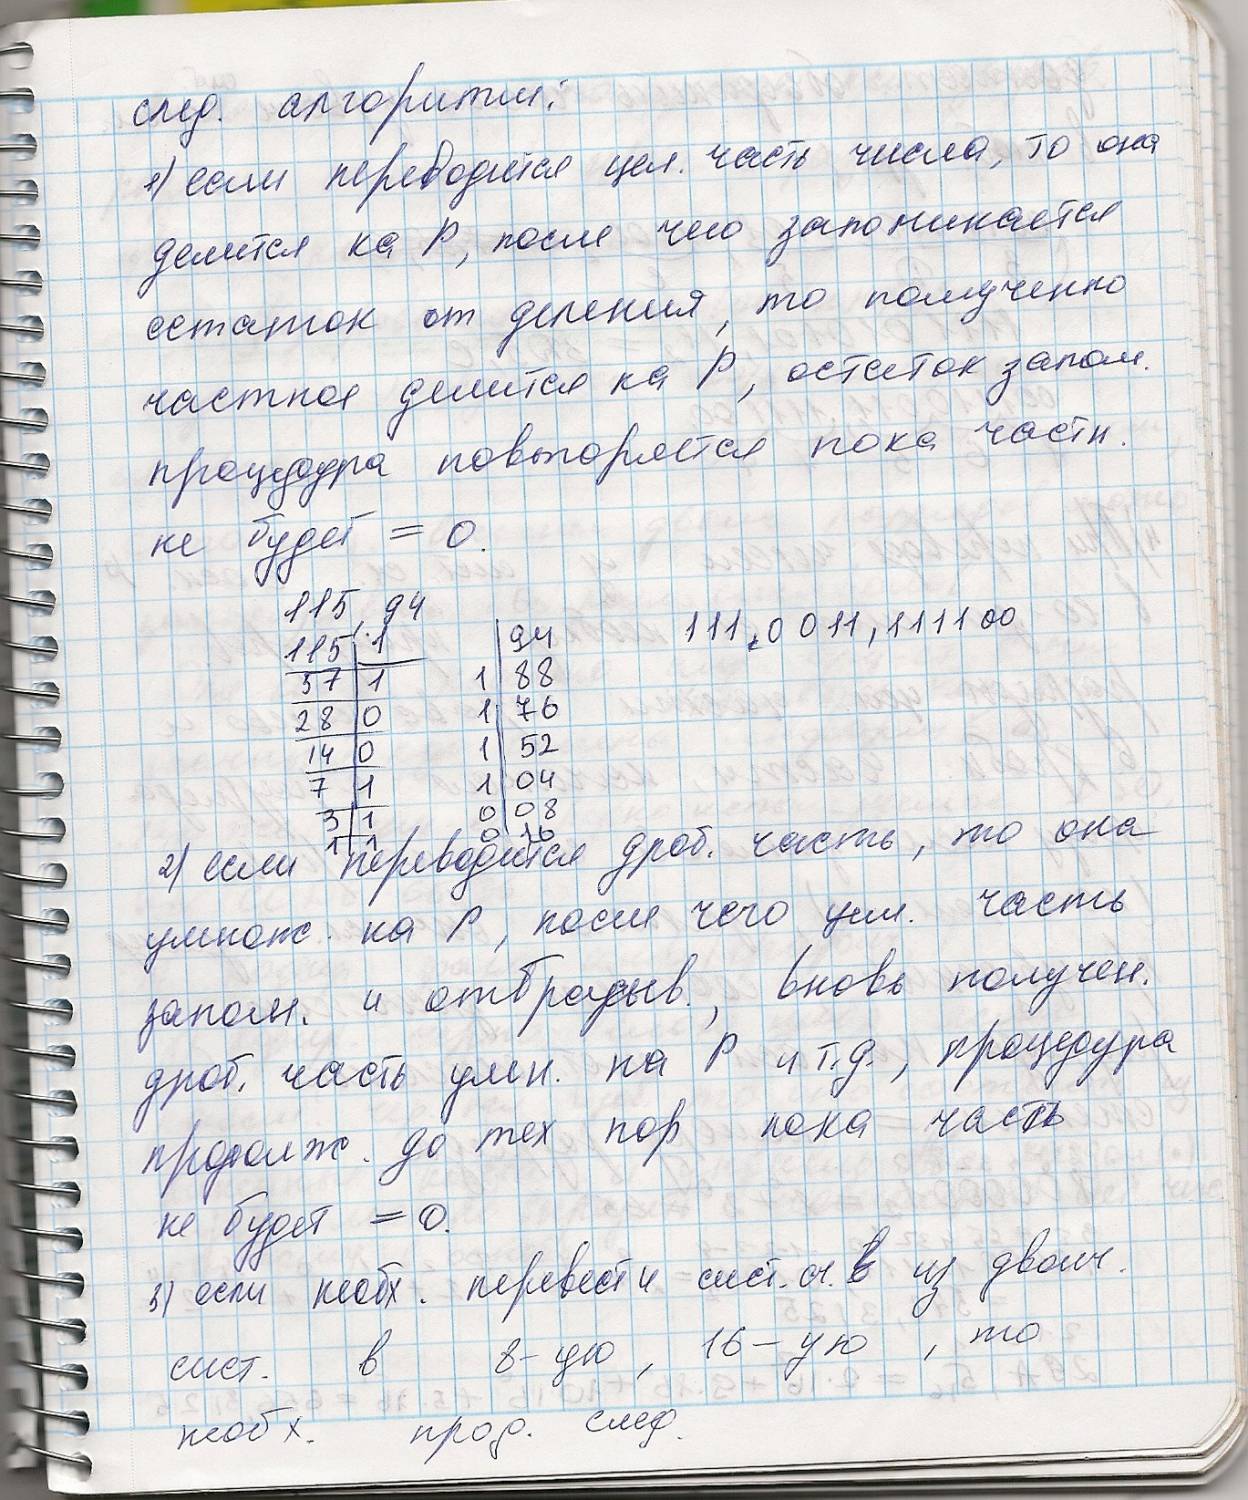 след. алгоритм:
1) если переводится цел. часть числа, то она
делится на P, после чего запоминается
остаток от деления, то полученно
частное делится на P, остаток запом.
процедура повторяется пока частн.
не будет = 0.
115,94
115 | 1
57 | 1
28 | 0
14 | 0
7 | 1
3 | 1
1 | 1
| 94
1 | 88
1 | 76
1 | 52
1 | 04
0 | 08
0 | 16
111,0011,111100
2) если переводится дроб. часть, то она
умнож. на P, после чего цел. часть
запом. и отбрасыв., вновь получен.
дроб. часть умн. на P и т.д., процедура
продолж. до тех пор пока часть
не будет = 0.
3) если необх. перевести сист. сч. в из двоич.
сист. в 8-ую, 16-ую, то
необх. прод. след.